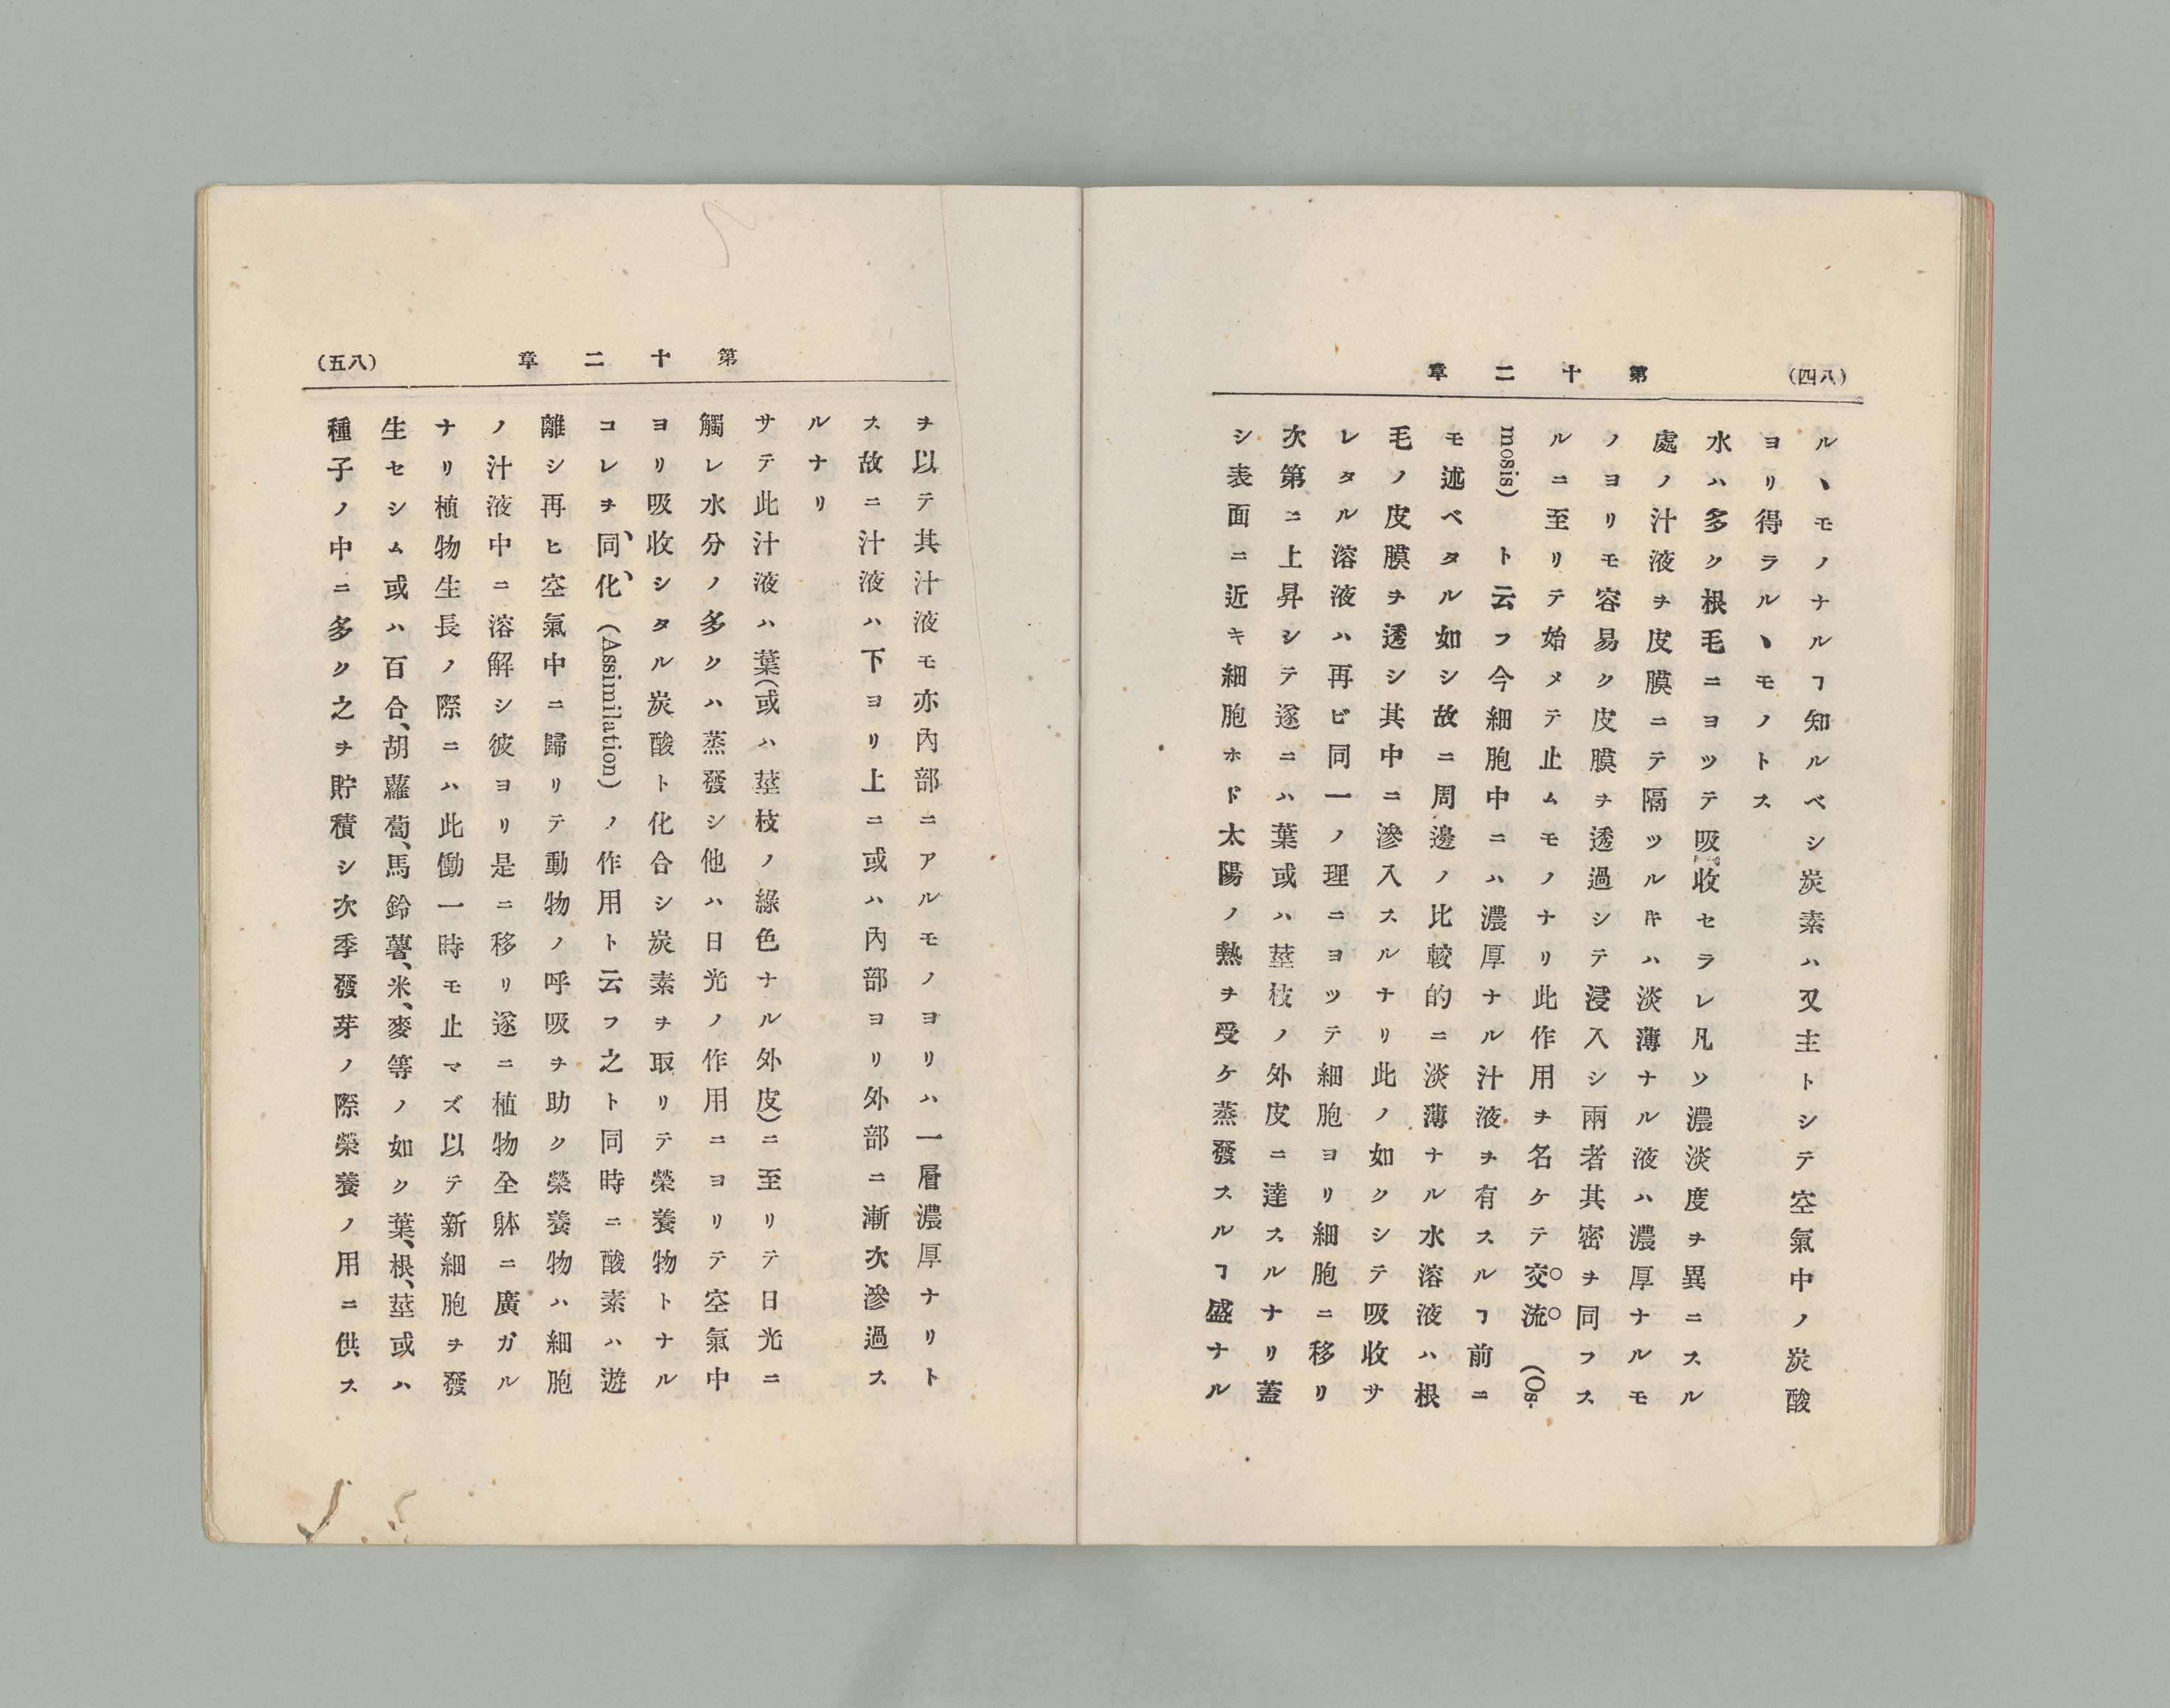 (四八)
第十二章
ルヽモノナルヿ知ルベシ炭素ハ又主トシテ空氣中ノ炭酸
ヨリ得ラルヽモノトス
水ハ多ク根毛ニヨツテ吸收セラレ凡ソ濃淡度ヲ異ニスル
處ノ汁液ヲ皮膜ニテ隔ツルキハ淡薄ナル液ハ濃厚ナルモ
ノヨリモ容易ク皮膜ヲ透過シテ浸入シ兩者其密ヲ同フス
ルニ至リテ始メテ止ムモノナリ此作用ヲ名ケテ交流(Os-
mosis)ト云フ今細胞中ニハ濃厚ナル汁液ヲ有スルヿ前ニ
モ述ベタル如シ故ニ周邊ノ比較的ニ淡薄ナル水溶液ハ根
毛ノ皮膜ヲ透シ其中ニ滲入スルナリ此ノ如クシテ吸收サ
レタル溶液ハ再ビ同一ノ理ニヨツテ細胞ヨリ細胞ニ移リ
次第ニ上昇シテ遂ニハ葉或ハ莖枝ノ外皮ニ達スルナリ蓋
シ表面ニ近キ細胞ホド太陽ノ熱ヲ受ケ蒸發スルヿ盛ナル
第十二章
(五八)
ヲ以テ其汁液モ亦內部ニアルモノヨリハ一層濃厚ナリト
ス故ニ汁液ハ下ヨリ上ニ或ハ內部ヨリ外部ニ漸次滲過ス
ルナリ
サテ此汁液ハ葉(或ハ莖枝ノ綠色ナル外皮)ニ至リテ日光ニ
觸レ水分ノ多クハ蒸發シ他ハ日光ノ作用ニヨリテ空氣中
ヨリ吸收シタル炭酸ト化合シ炭素ヲ取リテ榮養物トナル
コレヲ同化(Assimilation)ノ作用ト云フ之ト同時ニ酸素ハ遊
離シ再ヒ空氣中ニ歸リテ動物ノ呼吸ヲ助ク榮養物ハ細胞
ノ汁液中ニ溶解シ彼ヨリ是ニ移リ遂ニ植物全躰ニ廣ガル
ナリ植物生長ノ際ニハ此働一時モ止マズ以テ新細胞ヲ發
生セシム或ハ百合、胡蘿蔔、馬鈴薯、米、麥等ノ如ク葉、根、莖或ハ
種子ノ中ニ多ク之ヲ貯積シ次季發芽ノ際榮養ノ用ニ供ス